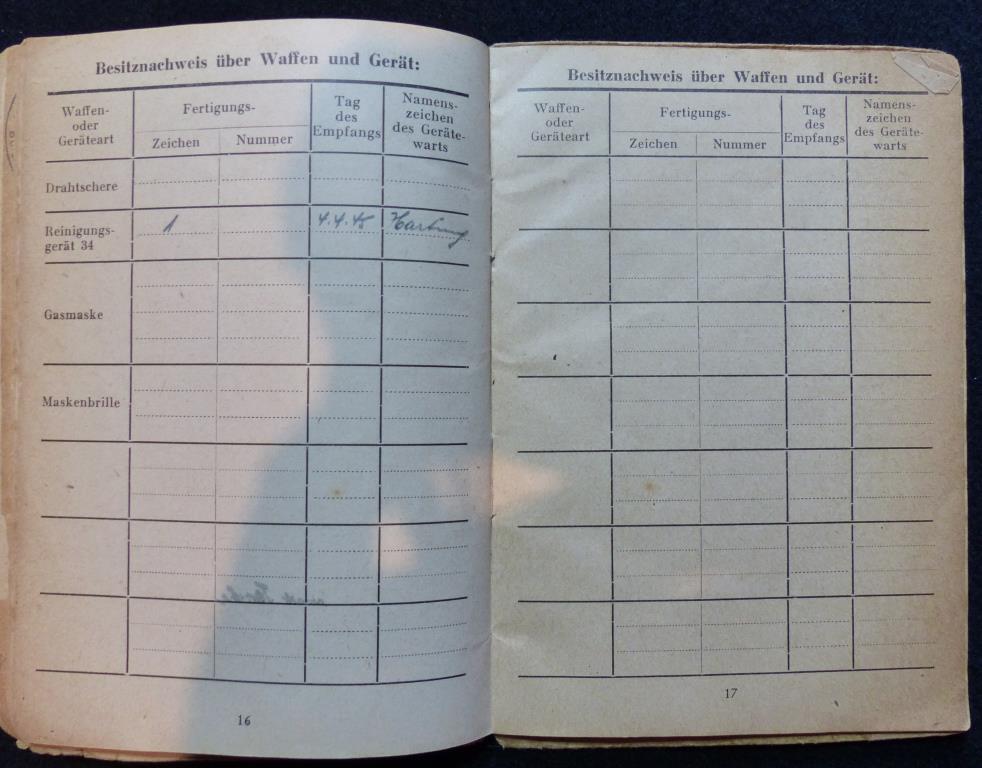 Besitznachweis über Waffen und Gerät:
Waffen-
oder
Geräteart
Fertigungs-
Zeichen
Nummer
Tag
des
Empfangs
Namens-
zeichen
des Geräte-
warts
Drahtschere
Reinigungs-
gerät 34
1
4.4.45
Hartung
Gasmaske
Maskenbrille
16
Besitznachweis über Waffen und Gerät:
Waffen-
oder
Geräteart
Fertigungs-
Zeichen
Nummer
Tag
des
Empfangs
Namens-
zeichen
des Geräte-
warts
17